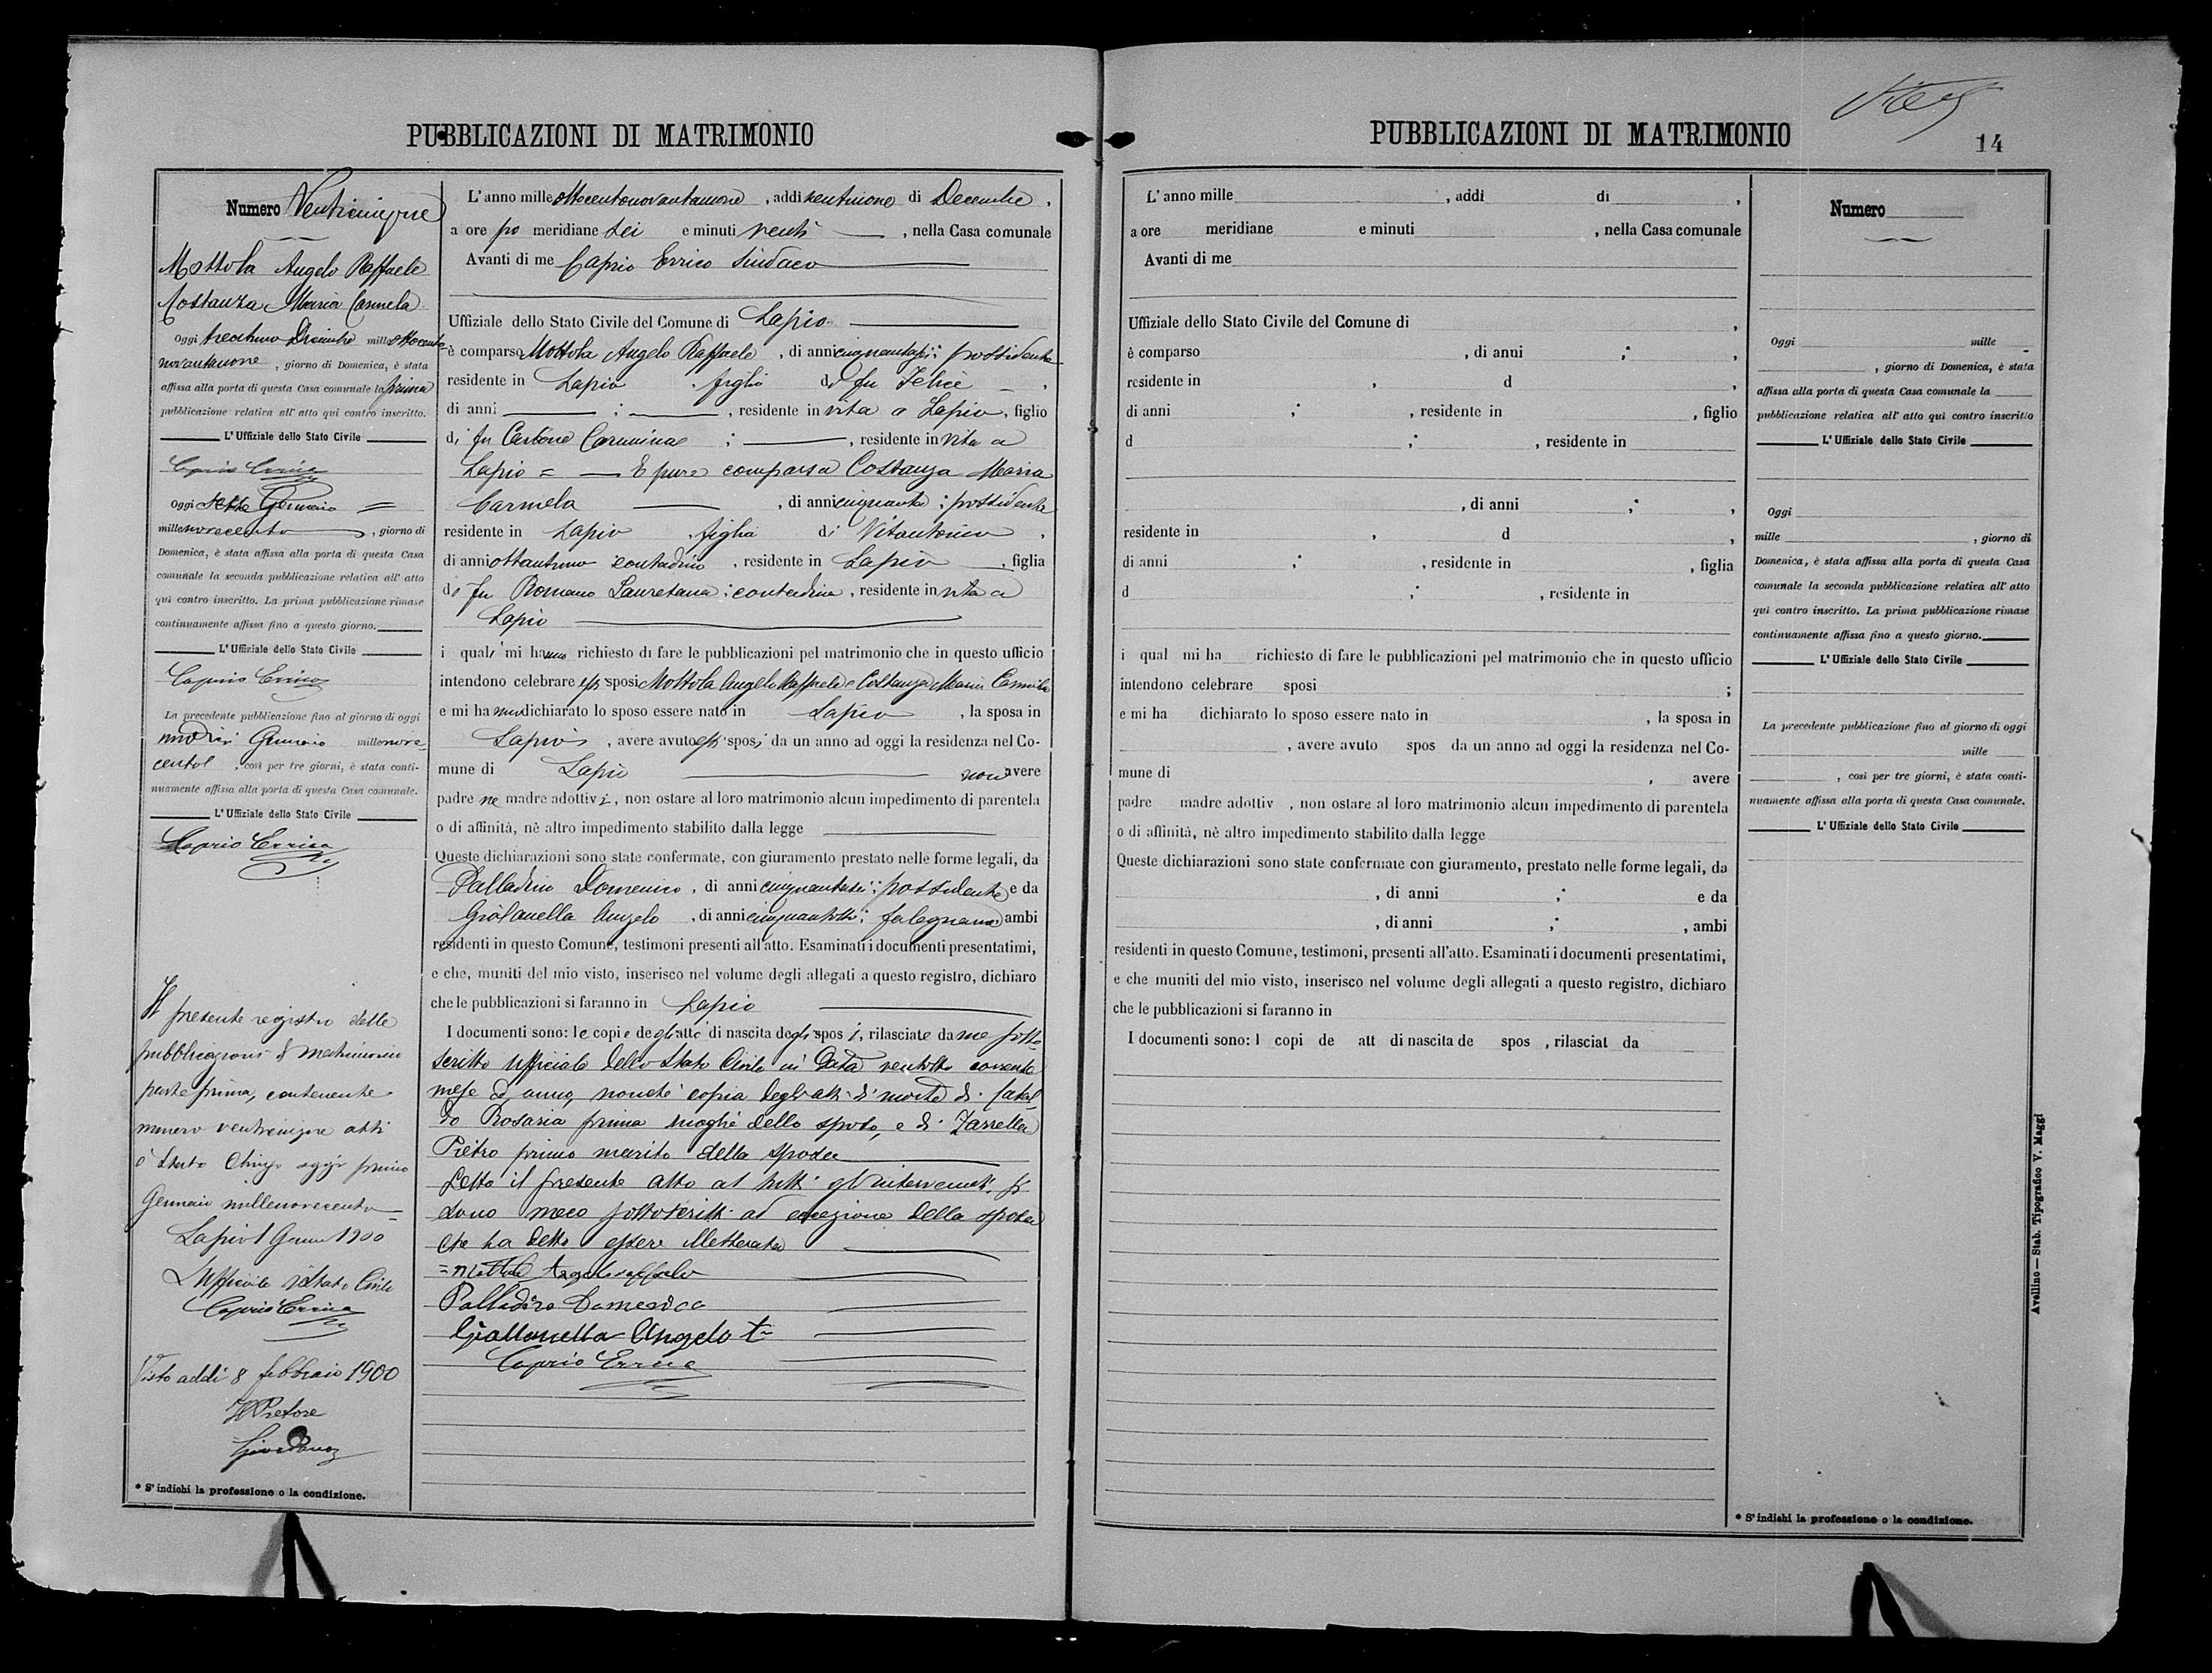 PUBBLICAZIONI DI MATRIMONIO
Numero Venticinque
Mottola Angelo Raffaele
Costanza Maria Carmela
Oggi trentuno Dicembre mille ottocento
novantanove, giorno di Domenica, è stata
affissa alla porta di questa Casa comunale la prima
pubblicazione relativa all' atto qui contro inscritto.
L' Uffiziale dello Stato Civile
Caprio Errico
Oggi sette Gennaio =
mille novecento, giorno di
Domenica, è stata affissa alla porta di questa Casa
comunale la seconda pubblicazione relativa all' atto
qui contro inscritto. La prima pubblicazione rimase
continuamente affissa fino a questo giorno.
L' Uffiziale dello Stato Civile
Caprio Errico
La precedente pubblicazione fino al giorno di oggi
Gennaio mille nove-
cento, così per tre giorni, è stata conti-
nuamente affissa alla porta di questa Casa comunale.
L' Uffiziale dello Stato Civile
Caprio Errico
Il presente registro delle
pubblicazioni di matrimonio
parte prima, contenente
numero venticinque atti
è stato chiuso oggi primo
Gennaio millenovecento =
Lapio 1 Genn 1900
L'Ufficiale Stato Civile
Caprio Errico
Visto addì 8 febbraio 1900
Il Pretore
Giordano
* S' indichi la professione o la condizione.
L' anno mille ottocentonovantanove, addì ventinove di Decembre,
a ore po meridiane sei e minuti venti, nella Casa comunale
Avanti di me Caprio Errico Sindaco
Uffiziale dello Stato Civile del Comune di Lapio
è comparso Mottola Angelo Raffaele, di anni cinquantasei; possidente
residente in Lapio, figlio di fu Felice,
di anni ; , residente in vita a Lapio, figlio
di fu Carbone Carmina ; , residente in vita a
Lapio = E pure comparsa Costanza Maria
Carmela, di anni cinquanta; possidente
residente in Lapio, figlia di Vitantonio,
di anni ottantuno contadino, residente in Lapio, figlia
di fu Romano Lauretana; contadina, residente in vita a
Lapio
i quali mi hanno richiesto di fare le pubblicazioni pel matrimonio che in questo ufficio
intendono celebrare essi sposi Mottola Angelo Raffaele e Costanza Maria Carmela
e mi hanno dichiarato lo sposo essere nato in Lapio, la sposa in
Lapio, avere avuto essi sposi da un anno ad oggi la residenza nel Co-
mune di Lapio non avere
padre ne madre adottivi, non ostare al loro matrimonio alcun impedimento di parentela
o di affinità, nè altro impedimento stabilito dalla legge
Queste dichiarazioni sono state confermate, con giuramento prestato nelle forme legali, da
Palladino Domenico, di anni cinquantasei; possidente e da
Giallanella Angelo, di anni cinquantotto; falegname ambi
residenti in questo Comune, testimoni presenti all'atto. Esaminati i documenti presentatimi,
e che, muniti del mio visto, inserisco nel volume degli allegati a questo registro, dichiaro
che le pubblicazioni si faranno in Lapio
I documenti sono: le copie degli atti di nascita degli sposi, rilasciate da me sotto-
scritto ufficiale dello Stato Civile in data ventotto corrente
mese ed anno, nonchè copia degli atti di morte di Catal-
do Rosaria prima moglie dello sposo, e di Zarrella
Pietro primo marito della sposa
Letto il presente atto a tutti gl'intervenuti, si
sono meco sottoscritti ad eccezione della sposa
che ha detto essere illetterata
= Mottola Angeloraffaele
Palladino Domenico
Giallonella Angelo t
Caprio Errico
PUBBLICAZIONI DI MATRIMONIO
14
L' anno mille , addì di ,
a ore meridiane e minuti , nella Casa comunale
Avanti di me
Uffiziale dello Stato Civile del Comune di ,
è comparso , di anni ; ,
residente in , d ,
di anni ; , residente in , figlio
d ; , residente in
, di anni ; ,
residente in , d ,
di anni ; , residente in , figlia
d ; , residente in
i qual mi ha richiesto di fare le pubblicazioni pel matrimonio che in questo ufficio
intendono celebrare sposi ;
e mi ha dichiarato lo sposo essere nato in , la sposa in
, avere avuto spos da un anno ad oggi la residenza nel Co-
mune di , avere
padre madre adottiv , non ostare al loro matrimonio alcun impedimento di parentela
o di affinità, nè altro impedimento stabilito dalla legge
Queste dichiarazioni sono state confermate con giuramento, prestato nelle forme legali, da
, di anni ; e da
, di anni ; , ambi
residenti in questo Comune, testimoni, presenti all'atto. Esaminati i documenti presentatimi,
e che muniti del mio visto, inserisco nel volume degli allegati a questo registro, dichiaro
che le pubblicazioni si faranno in
I documenti sono: l copi de att di nascita de spos , rilasciat da
Numero
Oggi mille
, giorno di Domenica, è stata
affissa alla porta di questa Casa comunale la
pubblicazione relativa all' atto qui contro inscritto
L' Uffiziale dello Stato Civile
Oggi
mille , giorno di
Domenica, è stata affissa alla porta di questa Casa
comunale la seconda pubblicazione relativa all' atto
qui contro inscritto. La prima pubblicazione rimase
continuamente affissa fino a questo giorno.
L' Uffiziale dello Stato Civile
La precedente pubblicazione fino al giorno di oggi
mille
, così per tre giorni, è stata conti-
nuamente affissa alla porta di questa Casa comunale.
L' Uffiziale dello Stato Civile
* S' indichi la professione o la condizione.
Avellino — Stab. Tipografico V. Maggi